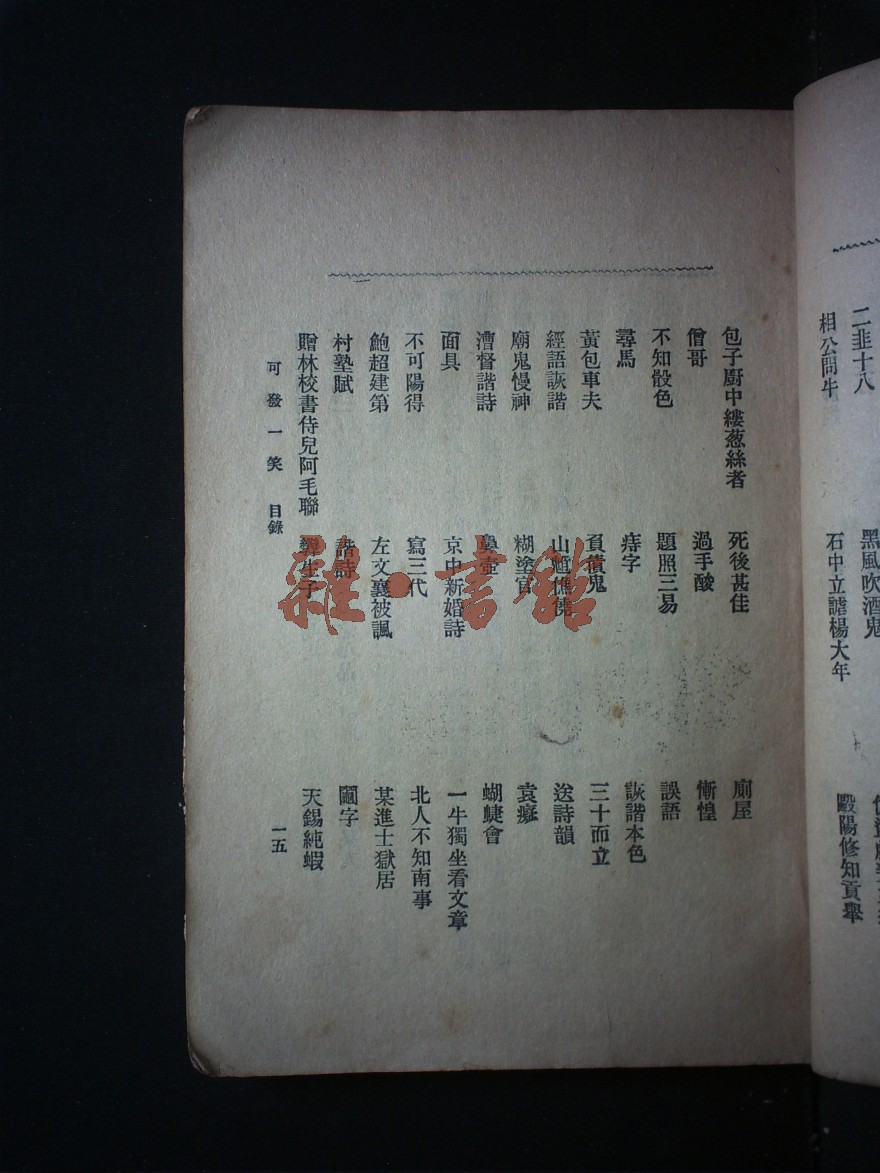 二韭十八
相公問牛
黑風吹酒鬼
石中立謔楊大年
毆陽修知貢舉
包子廚中縷葱絲者
僧哥
不知骰色
尋馬
黃包車夫
經語詼諧
廟鬼慢神
漕督諧詩
面具
不可陽得
鮑超建第
村塾賦
贈林校書侍兒阿毛聯
死後甚佳
過手酸
題照三易
痔字
負債鬼
糊塗官
鼻壺
京中新婚詩
寫三代
左文襄被諷
諧詩
廁屋
慚惶
誤語
詼諧本色
三十而立
送詩韻
袁癡
蝴蜨會
一牛獨坐看文章
北人不知南事
某進士獄居
圝字
天錫純蝦
可發一笑 目錄
一五
雜·書館